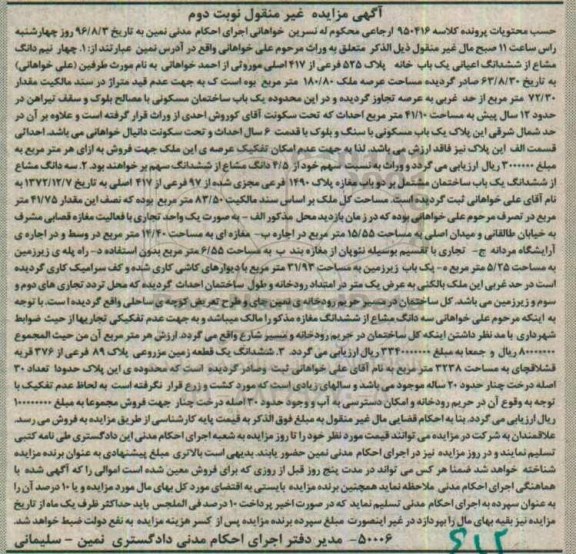 آگهی مزایده غیر منقول نوبت دوم
حسب محتویات پرونده کلاسه ۹۵۰۴۱۶ ارجاعی محکوم له نسرین خواهانی اجرای احکام مدنی نمین به تاریخ ۹۶/۸/۳ روز چهارشنبه
راس ساعت ۱۱ صبح مال غیر منقول ذیل الذکر متعلق به وراث مرحوم علی خواهانی واقع در آدرس نمین عبارتند از: ۱. چهار نیم دانگ
مشاع از ششدانگ اعیانی یک باب خانه پلاک ۵۲۵ فرعی از ۴۱۷ اصلی موروثی از احمد خواهانی به نام مورث طرفین (علی خواهانی)
به تاریخ ۶۳/۸/۳۰ صادر گردیده مساحت عرصه ملک ۱۸۰/۸۰ متر مربع بوده است که به جهت عدم قید متراژ در سند مالکیت مقدار
۷۲/۳۰ متر مربع از حد غربی به عرصه تجاوز گردیده و در این محدوده یک باب ساختمان مسکونی با مصالح بلوک و سقف تیراهن در
حدود ۱۲ سال پیش به مساحت ۴۱/۱۰ متر مربع احداث که تحت سکونت آقای کوروش احدی از وراث قرار گرفته است و علاوه بر آن در
حد شمال شرقی این پلاک یک باب مسکونی با سنگ و بلوک با قدمت ۶ سال احداث و تحت سکونت دانیال خواهانی می باشد. احداثی
قسمت الف این پلاک نیز فاقد ارزش می باشد. لذا به جهت عدم امکان تفکیک عرصه ی این ملک جهت فروش به ازای هر متر مربع به
مبلغ ۳۰۰۰۰۰۰ ریال ارزیابی می گردد و وراث به قدر سهم خود از ۴/۵ دانگ مشاع از ششدانگ سهم بر خواهند بود. ۲. سه دانگ مشاع
از ششدانگ یک باب ساختمان مشتمل بر دو باب مغازه پلاک ۱۴۹۰ فرعی مجزی شده از ۹۷ فرعی از ۴۱۷ اصلی به تاریخ ۱۳۷۲/۱۲/۷ به
نام آقای علی خواهانی ثبت گردیده است. مساحت کل ملک بر اساس سند مالکیت ۸۳/۵۰ متر مربع بوده که نصف این مقدار ۴۱/۷۵ متر
مربع در تصرف مرحوم علی خواهانی بوده که در زمان بازدید محل مذکور الف - به صورت یک واحد تجاری با فعالیت مغازه قصابی مشرف
به خیابان طالقانی و میدان اصلی به مساحت ۱۵/۵۵ متر مربع در اجاره ب- مغازه ای به مساحت ۱۴/۴۰ متر مربع در وسط و در اجاره ی
آرایشگاه مردانه ج- تجاری با تقسیم بوسیله نئوپان از مغازه بند ب به مساحت ۶/۵۵ متر مربع بدون استفاده د- راه پله ی زیرزمین
به مساحت ۵/۲۵ متر مربع ه- یک باب زیرزمین به مساحت ۳۱/۹۳ متر مربع با دیوارهای کاشی کاری شده و کف سرامیک کاری گردیده
است در حد غربی این ملک بالکنی به عرض یک متر در امتداد رودخانه و طول ساختمان احداث گردیده که محل تردد تجاری های دوم و
سوم و زیرزمین می باشد. کل ساختمان در مسیر حریم رودخانه ی نمین چای و طرح تعریض کوچه ی ساحلی واقع گردیده است. با توجه
به اینکه مرحوم علی خواهانی سه دانگ مشاع از ششدانگ مغازه مذکور را مالک میباشد و به جهت عدم تفکیکی تجاریها از حیث ضوابط
شهرداری با مد نظر داشتن اینکه کل ساختمان در حریم رودخانه و مسیر شارع واقع می گردد. ارزش هر متر مربع آن من حیث المجموع
۸۰۰۰۰۰۰۰ ریال و جمعا به مبلغ ۳۳۴۰۰۰۰۰۰۰ ریال ارزیابی می گردد. ۳. ششدانگ یک قطعه زمین مزروعی پلاک ۸۹ فرعی از ۳۷۶ قریه
قشلاقچای به مساحت ۳۲۳۸ متر مربع به نام آقای علی خواهانی ثبت وصادر گردیده است که محدوده ی این پلاک حدودا تعداد ۳۰
اصله درخت چنار حدود ۲۰ ساله موجود می باشد و سالهای زیادی است که مورد کشت و زرع قرار نگرفته است به لحاظ عدم تفکیک با
توجه به وقوع آن در حریم رودخانه و امکان دسترسی به آب و وجود حدود ۳۰ اصله درخت چنار جهت فروش مجموعا به مبلغ ۱۰۰۰۰۰۰۰۰
ریال ارزیابی می گردد. بنا به احکام قضایی مال غیر منقول به مبلغ فوق الذکر به قیمت پایه کارشناسی از طریق مزایده به فروش می رسد.
علاقمندان به شرکت در مزایده می توانند قیمت مورد نظر خود را تا روز مزایده به شعبه اجرای احکام مدنی این دادگستری طی نامه کتبی
تسلیم نمایند و در روز مزایده نیز در اجرای احکام مدنی نمین حضور یابند. بدیهی است بالاتری مبلغ پیشنهادی به عنوان برنده مزایده
شناخته خواهد شد ضمنا هر کس می تواند در مدت پنج روز قبل از روزی که برای فروش معین شده است اموالی را که آگهی شده با
هماهنگی اجرای احکام مدنی ملاحظه نماید همچنین برنده مزایده بایستی به اقتضای مورد کل بهای مال مورد مزایده و یا ۱۰ درصد آن را
به عنوان سپرده به اجرای احکام مدنی تسلیم نماید که در صورت اخیر پرداخت ۱۰ درصد فی المجلس باید حداکثر ظرف یک ماه از تاریخ
مزایده نیز بقیه بهای مال را بپردازد در غیر اینصورت مبلغ سپرده برنده مزایده پس از کسر هزینه مزایده به نفع دولت ضبط خواهد شد.
۵۰۰۰۶- مدیر دفتر اجرای احکام مدنی دادگستری نمین - سلیمانی